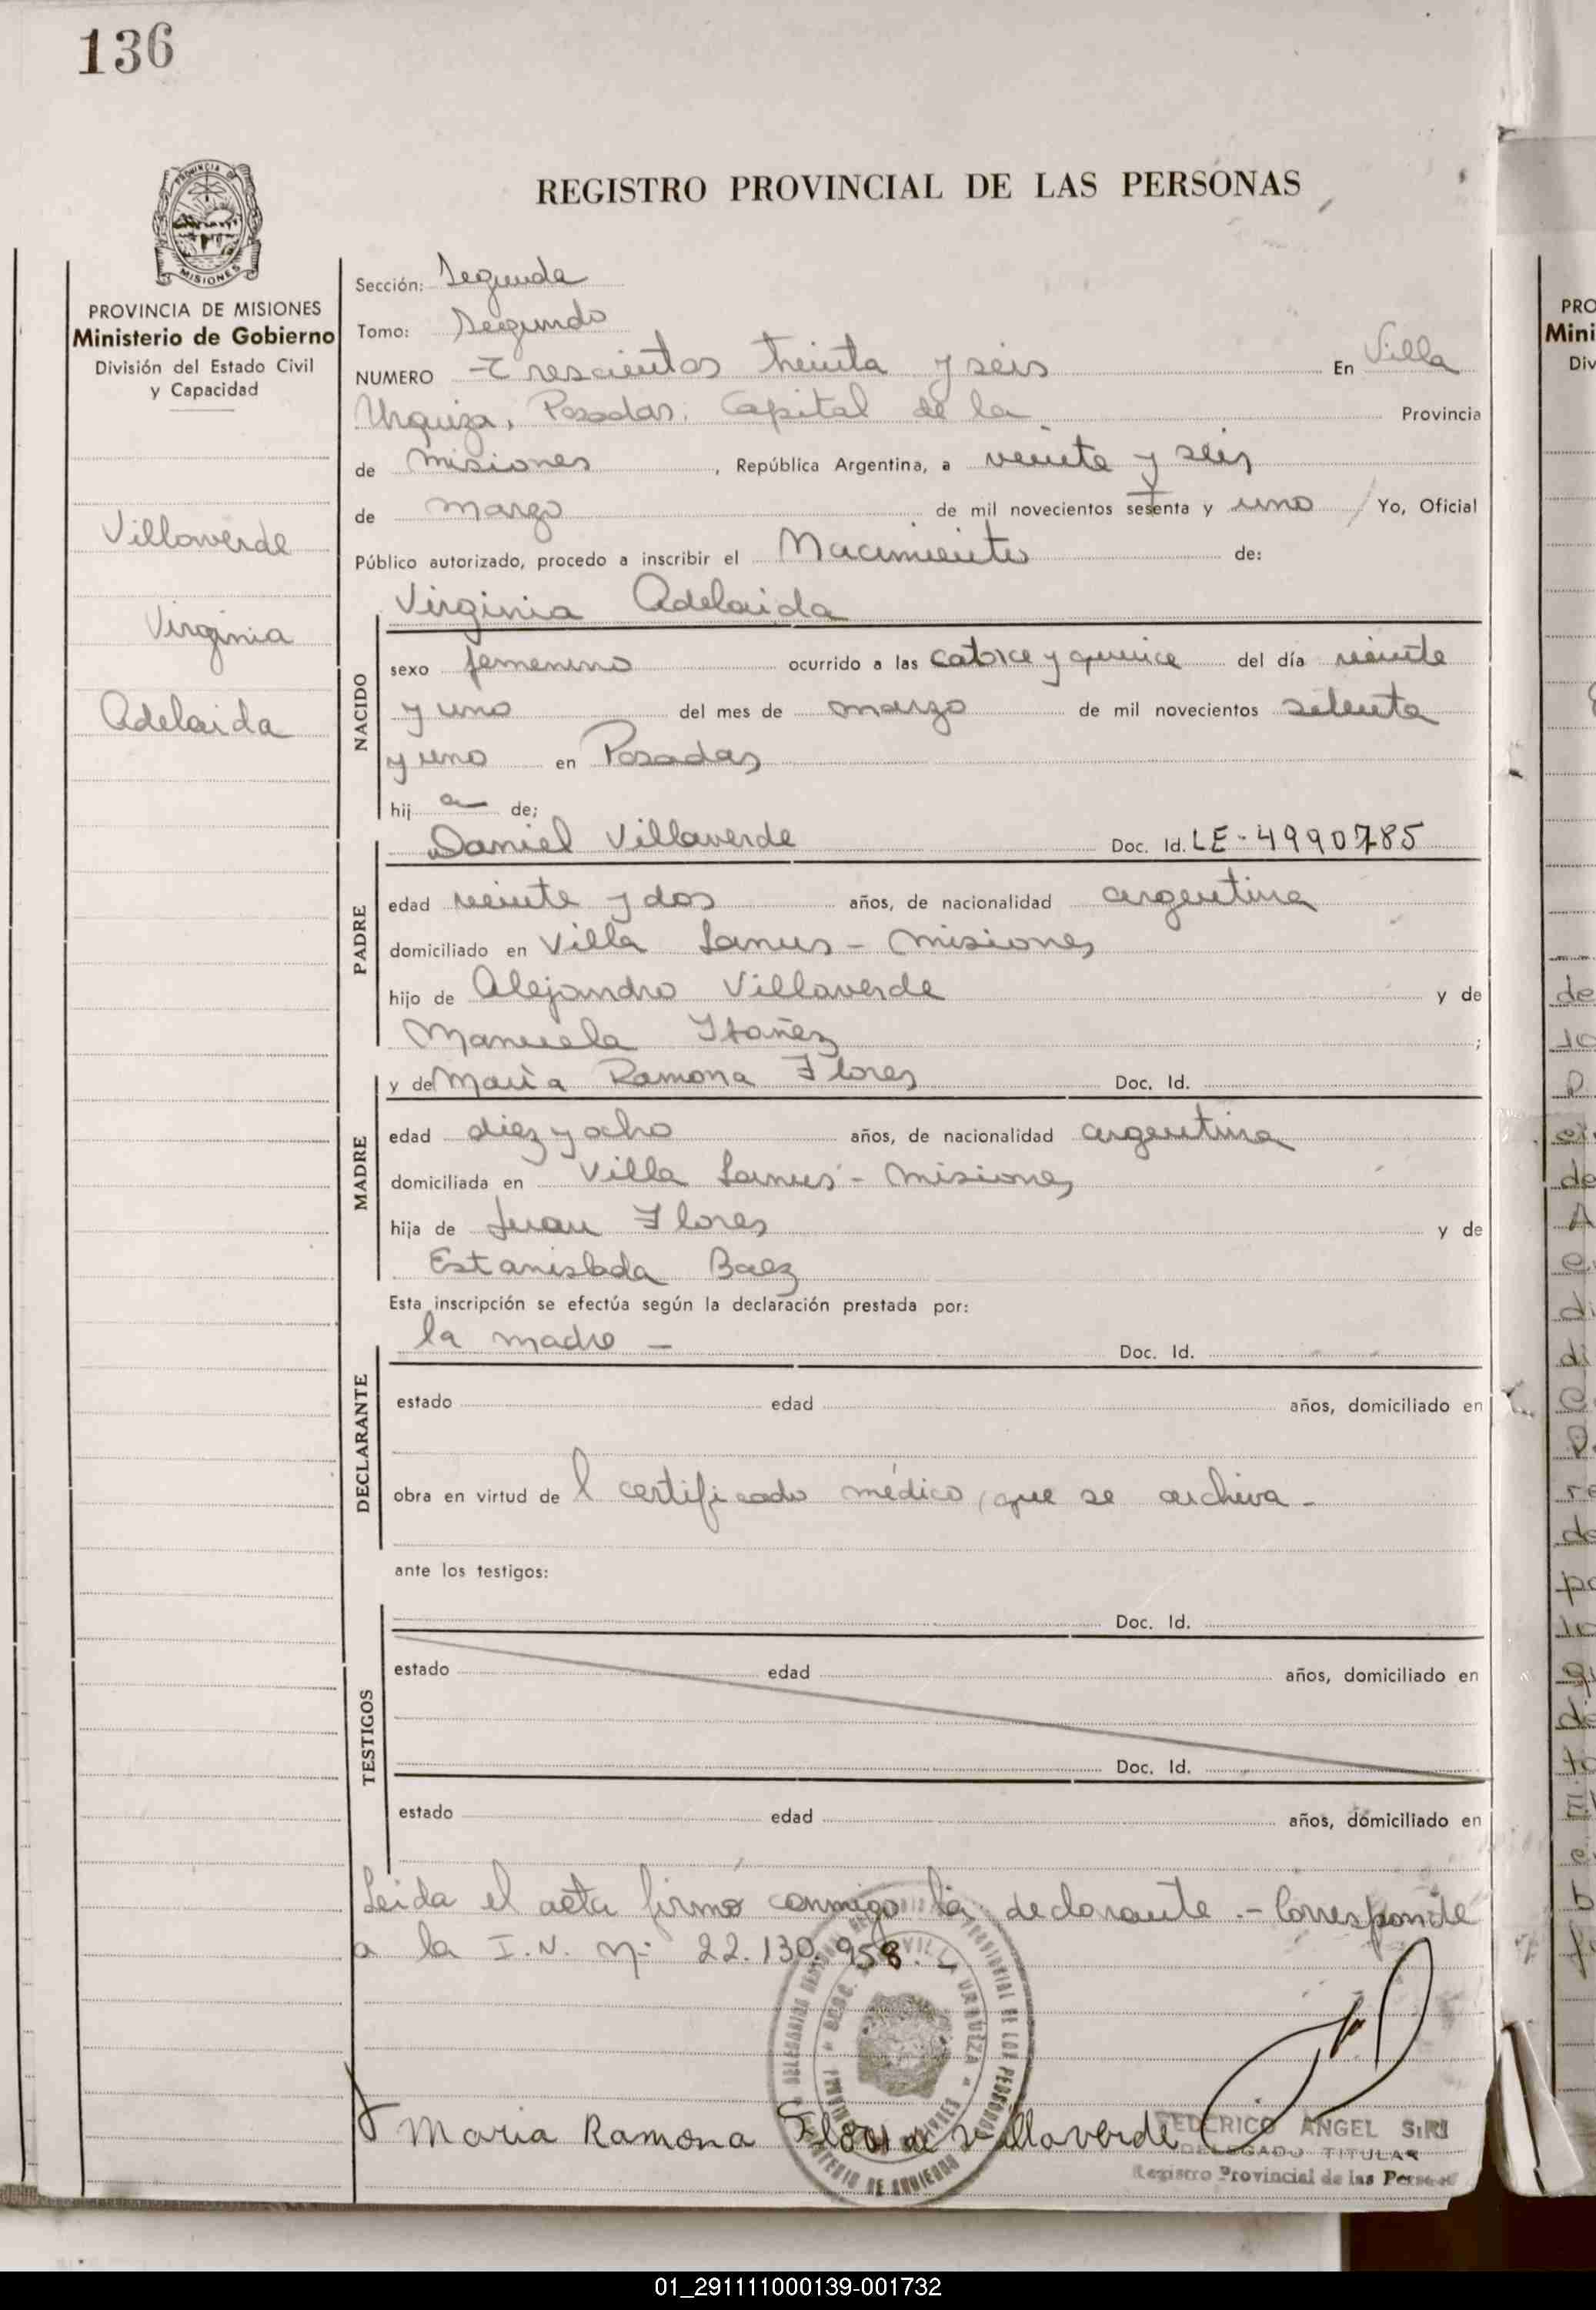 136
REGISTRO PROVINCIAL DE LAS PERSONAS
PROVINCIA DE
MISIONES
PROVINCIA DE MISIONES
Ministerio de Gobierno
División del Estado Civil
y Capacidad
Villaverde
Virginia
Adelaida
Sección: Segunda
Tomo: Segundo
NUMERO Trescientos treinta y seis En Villa
Urquiza, Posadas, Capital de la Provincia
de Misiones, República Argentina, a veinte y seis
de marzo de mil novecientos sesenta y uno Yo, Oficial
Público autorizado, procedo a inscribir el Nacimiento de:
Virginia Adelaida
NACIDO
sexo femenino ocurrido a las catorce y quince del día veinte
y uno del mes de marzo de mil novecientos setenta
y uno en Posadas
hij a de;
Daniel Villaverde Doc. Id. LE-4990785
PADRE
edad veinte y dos años, de nacionalidad argentina
domiciliado en Villa Lanus - Misiones
hijo de Alejandro Villaverde y de
Manuela Ibañez ;
y de Maria Ramona Flores Doc. Id.
MADRE
edad diez y ocho años, de nacionalidad argentina
domiciliada en Villa Lanus - Misiones
hija de Juan Flores y de
Estanislada Baez
Esta inscripción se efectúa según la declaración prestada por:
la madre - Doc. Id.
DECLARANTE
estado edad años, domiciliado en
obra en virtud de l certificado médico, que se archiva -
ante los testigos:
Doc. Id.
TESTIGOS
estado edad años, domiciliado en
Doc. Id.
estado edad años, domiciliado en
Leida el acta firmó conmigo la declarante .- Corresponde
a la I.N. Nº 22.130.958.-
Maria Ramona Flores de Villaverde
FEDERICO ANGEL SIRI
DELEGADO TITULAR
Registro Provincial de las Personas
PRO
Mini
Div
01_291111000139-001732